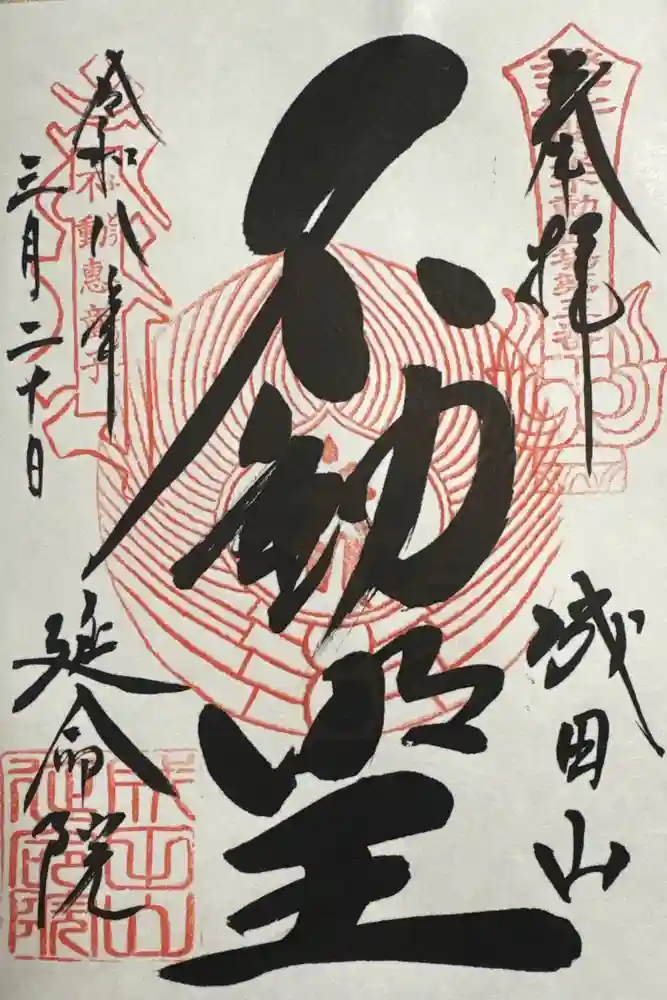 奉拝
成田山
不動明王
令和八年
三月二十日
延命院